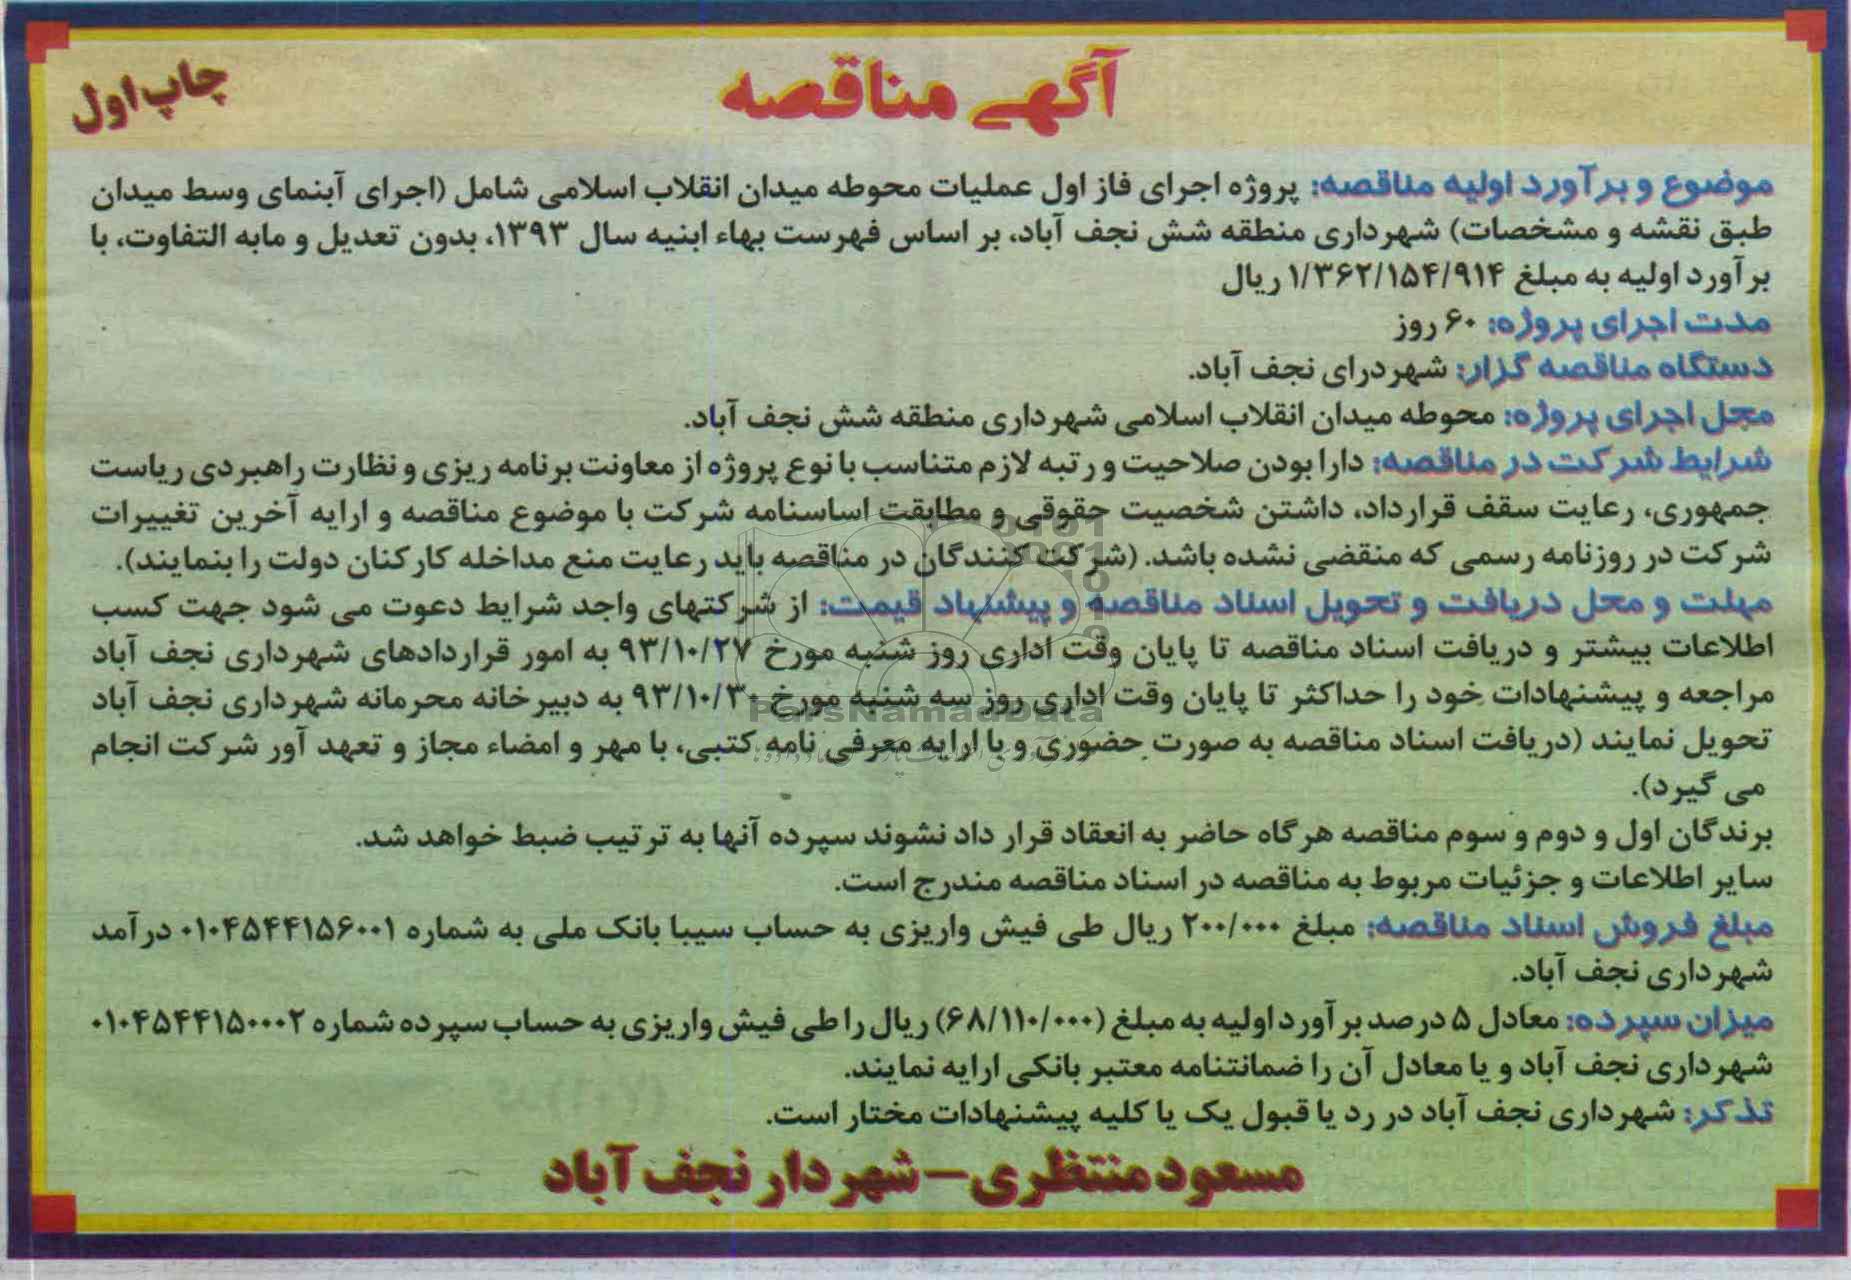 آگهی مناقصه
چاپ اول
موضوع و برآورد اولیه مناقصه: پروژه اجرای فاز اول عملیات محوطه میدان انقلاب اسلامی شامل (اجرای آبنمای وسط میدان
طبق نقشه و مشخصات) شهرداری منطقه شش نجف آباد، بر اساس فهرست بهاء ابنیه سال ۱۳۹۳، بدون تعدیل و مابه التفاوت، با
برآورد اولیه به مبلغ ۱/۳۶۲/۱۵۴/۹۱۴ ریال
مدت اجرای پروژه: ۶۰ روز
دستگاه مناقصه گزار: شهردرای نجف آباد.
محل اجرای پروژه: محوطه میدان انقلاب اسلامی شهرداری منطقه شش نجف آباد.
شرایط شرکت در مناقصه: دارا بودن صلاحیت و رتبه لازم متناسب با نوع پروژه از معاونت برنامه ریزی و نظارت راهبردی ریاست
جمهوری، رعایت سقف قرارداد، داشتن شخصیت حقوقی و مطابقت اساسنامه شرکت با موضوع مناقصه و ارایه آخرین تغییرات
شرکت در روزنامه رسمی که منقضی نشده باشد. (شرکت کنندگان در مناقصه باید رعایت منع مداخله کارکنان دولت را بنمایند).
مهلت و محل دریافت و تحویل اسناد مناقصه و پیشنهاد قیمت: از شرکتهای واجد شرایط دعوت می شود جهت کسب
اطلاعات بیشتر و دریافت اسناد مناقصه تا پایان وقت اداری روز شنبه مورخ ۹۳/۱۰/۲۷ به امور قراردادهای شهرداری نجف آباد
مراجعه و پیشنهادات خود را حداکثر تا پایان وقت اداری روز سه شنبه مورخ ۹۳/۱۰/۳۰ به دبیرخانه محرمانه شهرداری نجف آباد
تحویل نمایند (دریافت اسناد مناقصه به صورت حضوری و با ارایه معرفی نامه کتبی، با مهر و امضاء مجاز و تعهد آور شرکت انجام
می گیرد).
برندگان اول و دوم و سوم مناقصه هرگاه حاضر به انعقاد قرار داد نشوند سپرده آنها به ترتیب ضبط خواهد شد.
سایر اطلاعات و جزئیات مربوط به مناقصه در اسناد مناقصه مندرج است.
مبلغ فروش اسناد مناقصه: مبلغ ۲۰۰/۰۰۰ ریال طی فیش واریزی به حساب سیبا بانک ملی به شماره ۰۱۰۴۵۴۴۱۵۶۰۰۱ درآمد
شهرداری نجف آباد.
میزان سپرده: معادل ۵ درصد برآورد اولیه به مبلغ (۶۸/۱۱۰/۰۰۰) ریال را طی فیش واریزی به حساب سپرده شماره ۰۱۰۴۵۴۴۱۵۰۰۰۲
شهرداری نجف آباد و یا معادل آن را ضمانتنامه معتبر بانکی ارایه نمایند.
تذکر: شهرداری نجف آباد در رد یا قبول یک یا کلیه پیشنهادات مختار است.
مسعود منتظری – شهردار نجف آباد
ParsNamadData